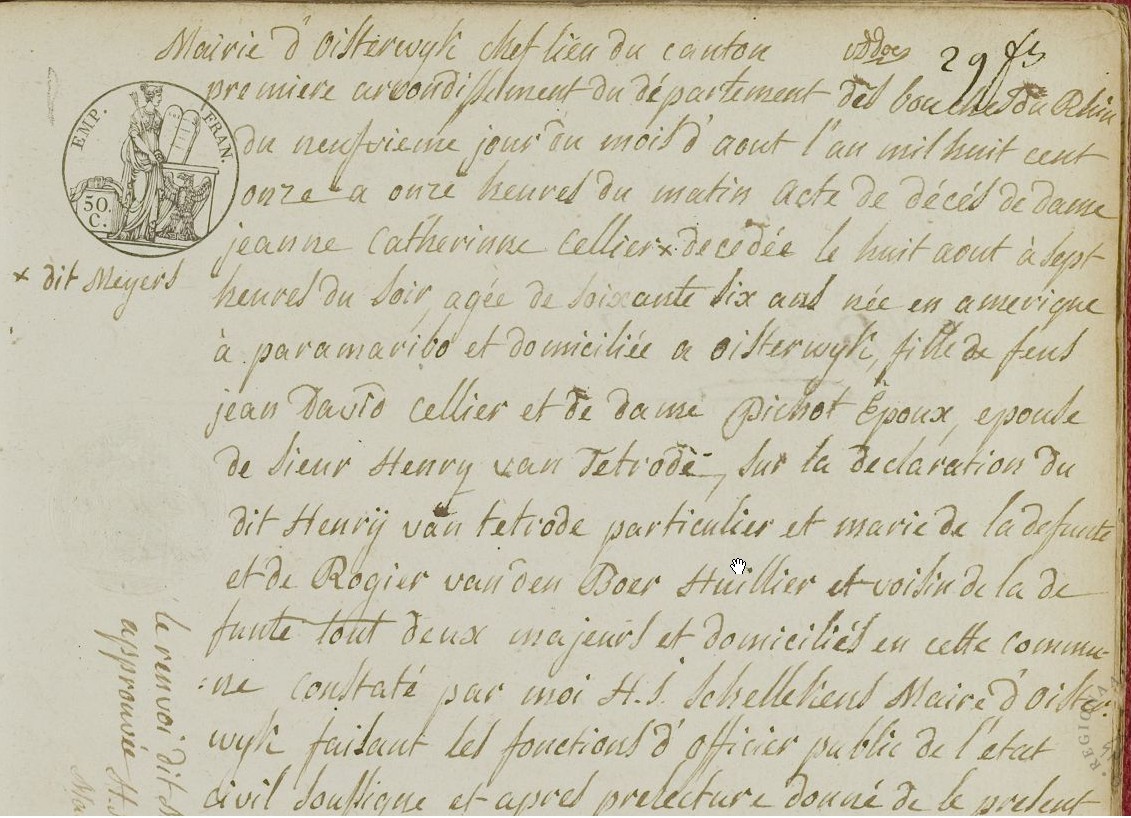 Mairie d'Oisterwyk chef lieu du canton
29 
premiere arrondissement du département des bouches du Rhin
EMP. FRAN.
50. C.
du neufvieme jour du mois d'aout l'an mil huit cent
onze a onze heures du matin acte de décés de dame
jeanne Catherinne Cellier x decedée le huit aout à sept
x dit Meyers
heures du soir, agée de soixante six ans née en amerique
à paramaribo et domiciliée a oisterwyk, fille de feus
jean David Cellier et de dame Pichot Époux, epouse
de sieur Henry van Tetrode, sur la declaration du
dit Henrij van tetrode particulier et marie de la defunte
et de Rogier van den Boer Huillier et voisin de la de
funte tout deux majeurs et domiciliés en cette commu-
ne constaté par moi H. S. Schellekens Maire d'Oister
wyk faisant les fonctions d'officier public de l'etat
civil soussigne et apres prelecture donné de le present
le renvoi dit
approuvée H.
Ma